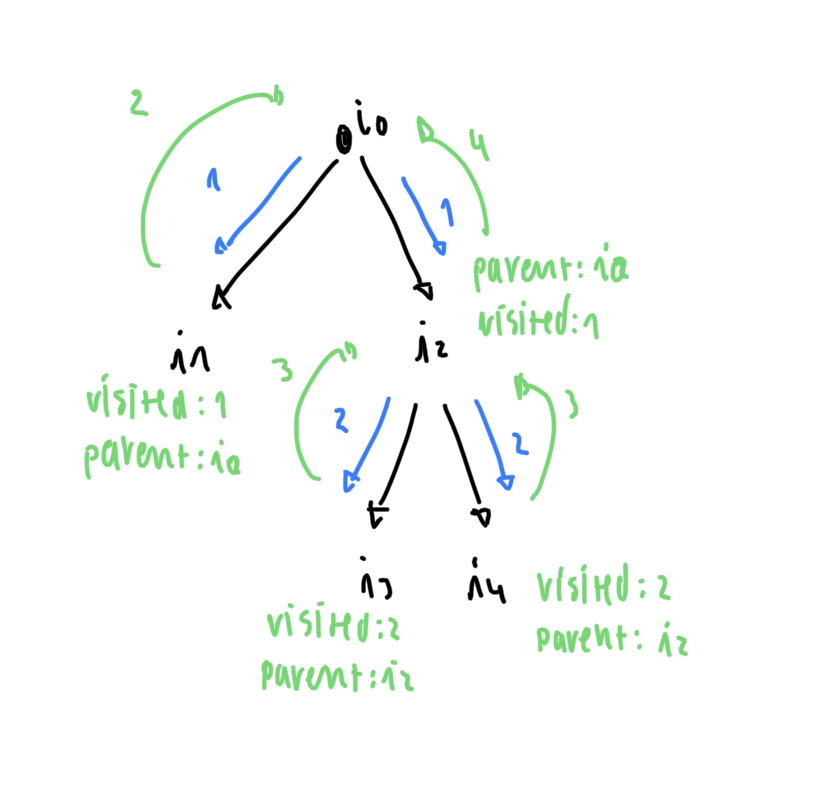 2
i0
4
1
1
parent: i0
visited: 1
i1
i2
visited: 1
parent: i0
3
2
2
3
i3
i4
visited: 2
parent: i2
visited: 2
parent: i2